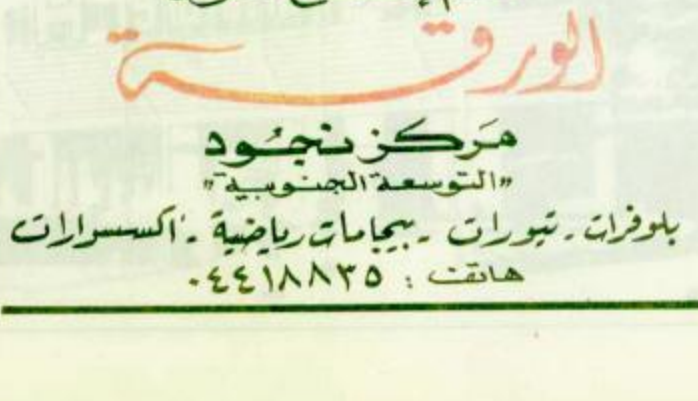 الورقة
مركز نجود
"التوسعة الجنوبية"
بلوفرات - تيورات - بيجامات رياضية - اكسسوارات
هاتف : ٠٤٤١٨٨٣٥